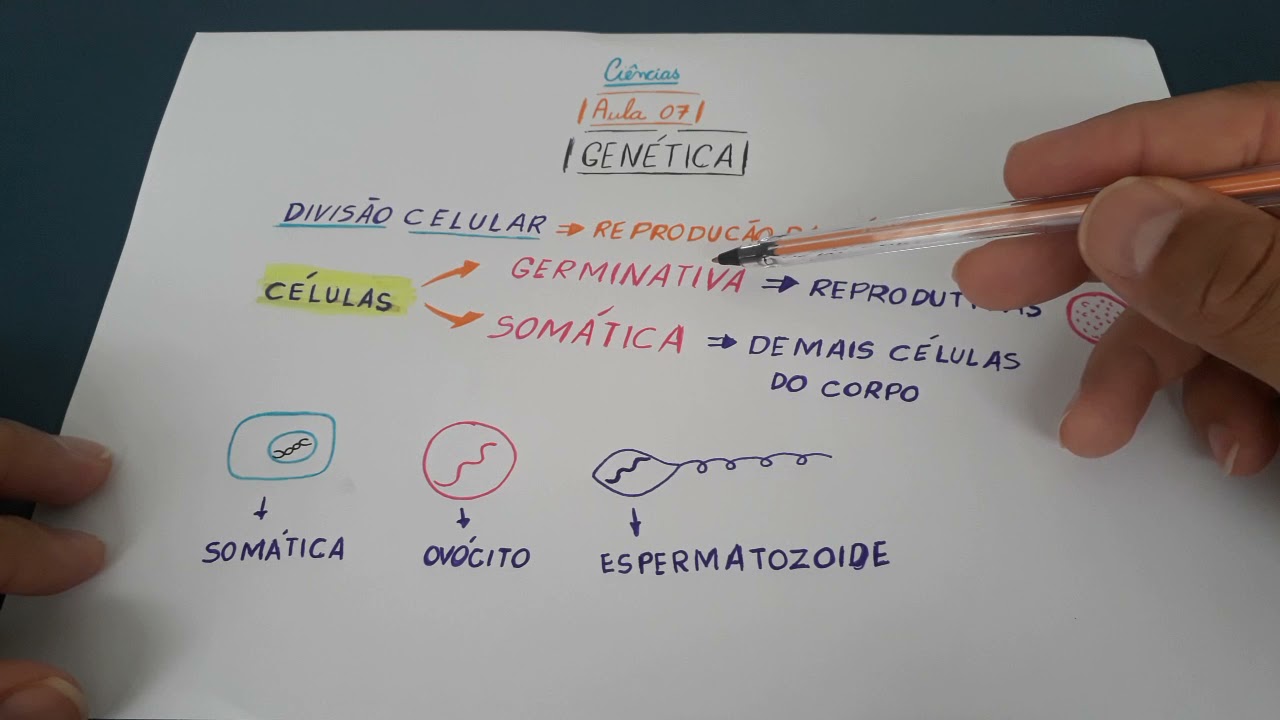 Ciências
Aula 07
GENÉTICA
DIVISÃO CELULAR ⇒ REPRODUÇÃO
CÉLULAS
GERMINATIVA ⇒ REPRODUTIVAS
SOMÁTICA ⇒ DEMAIS CÉLULAS
DO CORPO
SOMÁTICA
OVÓCITO
ESPERMATOZOIDE